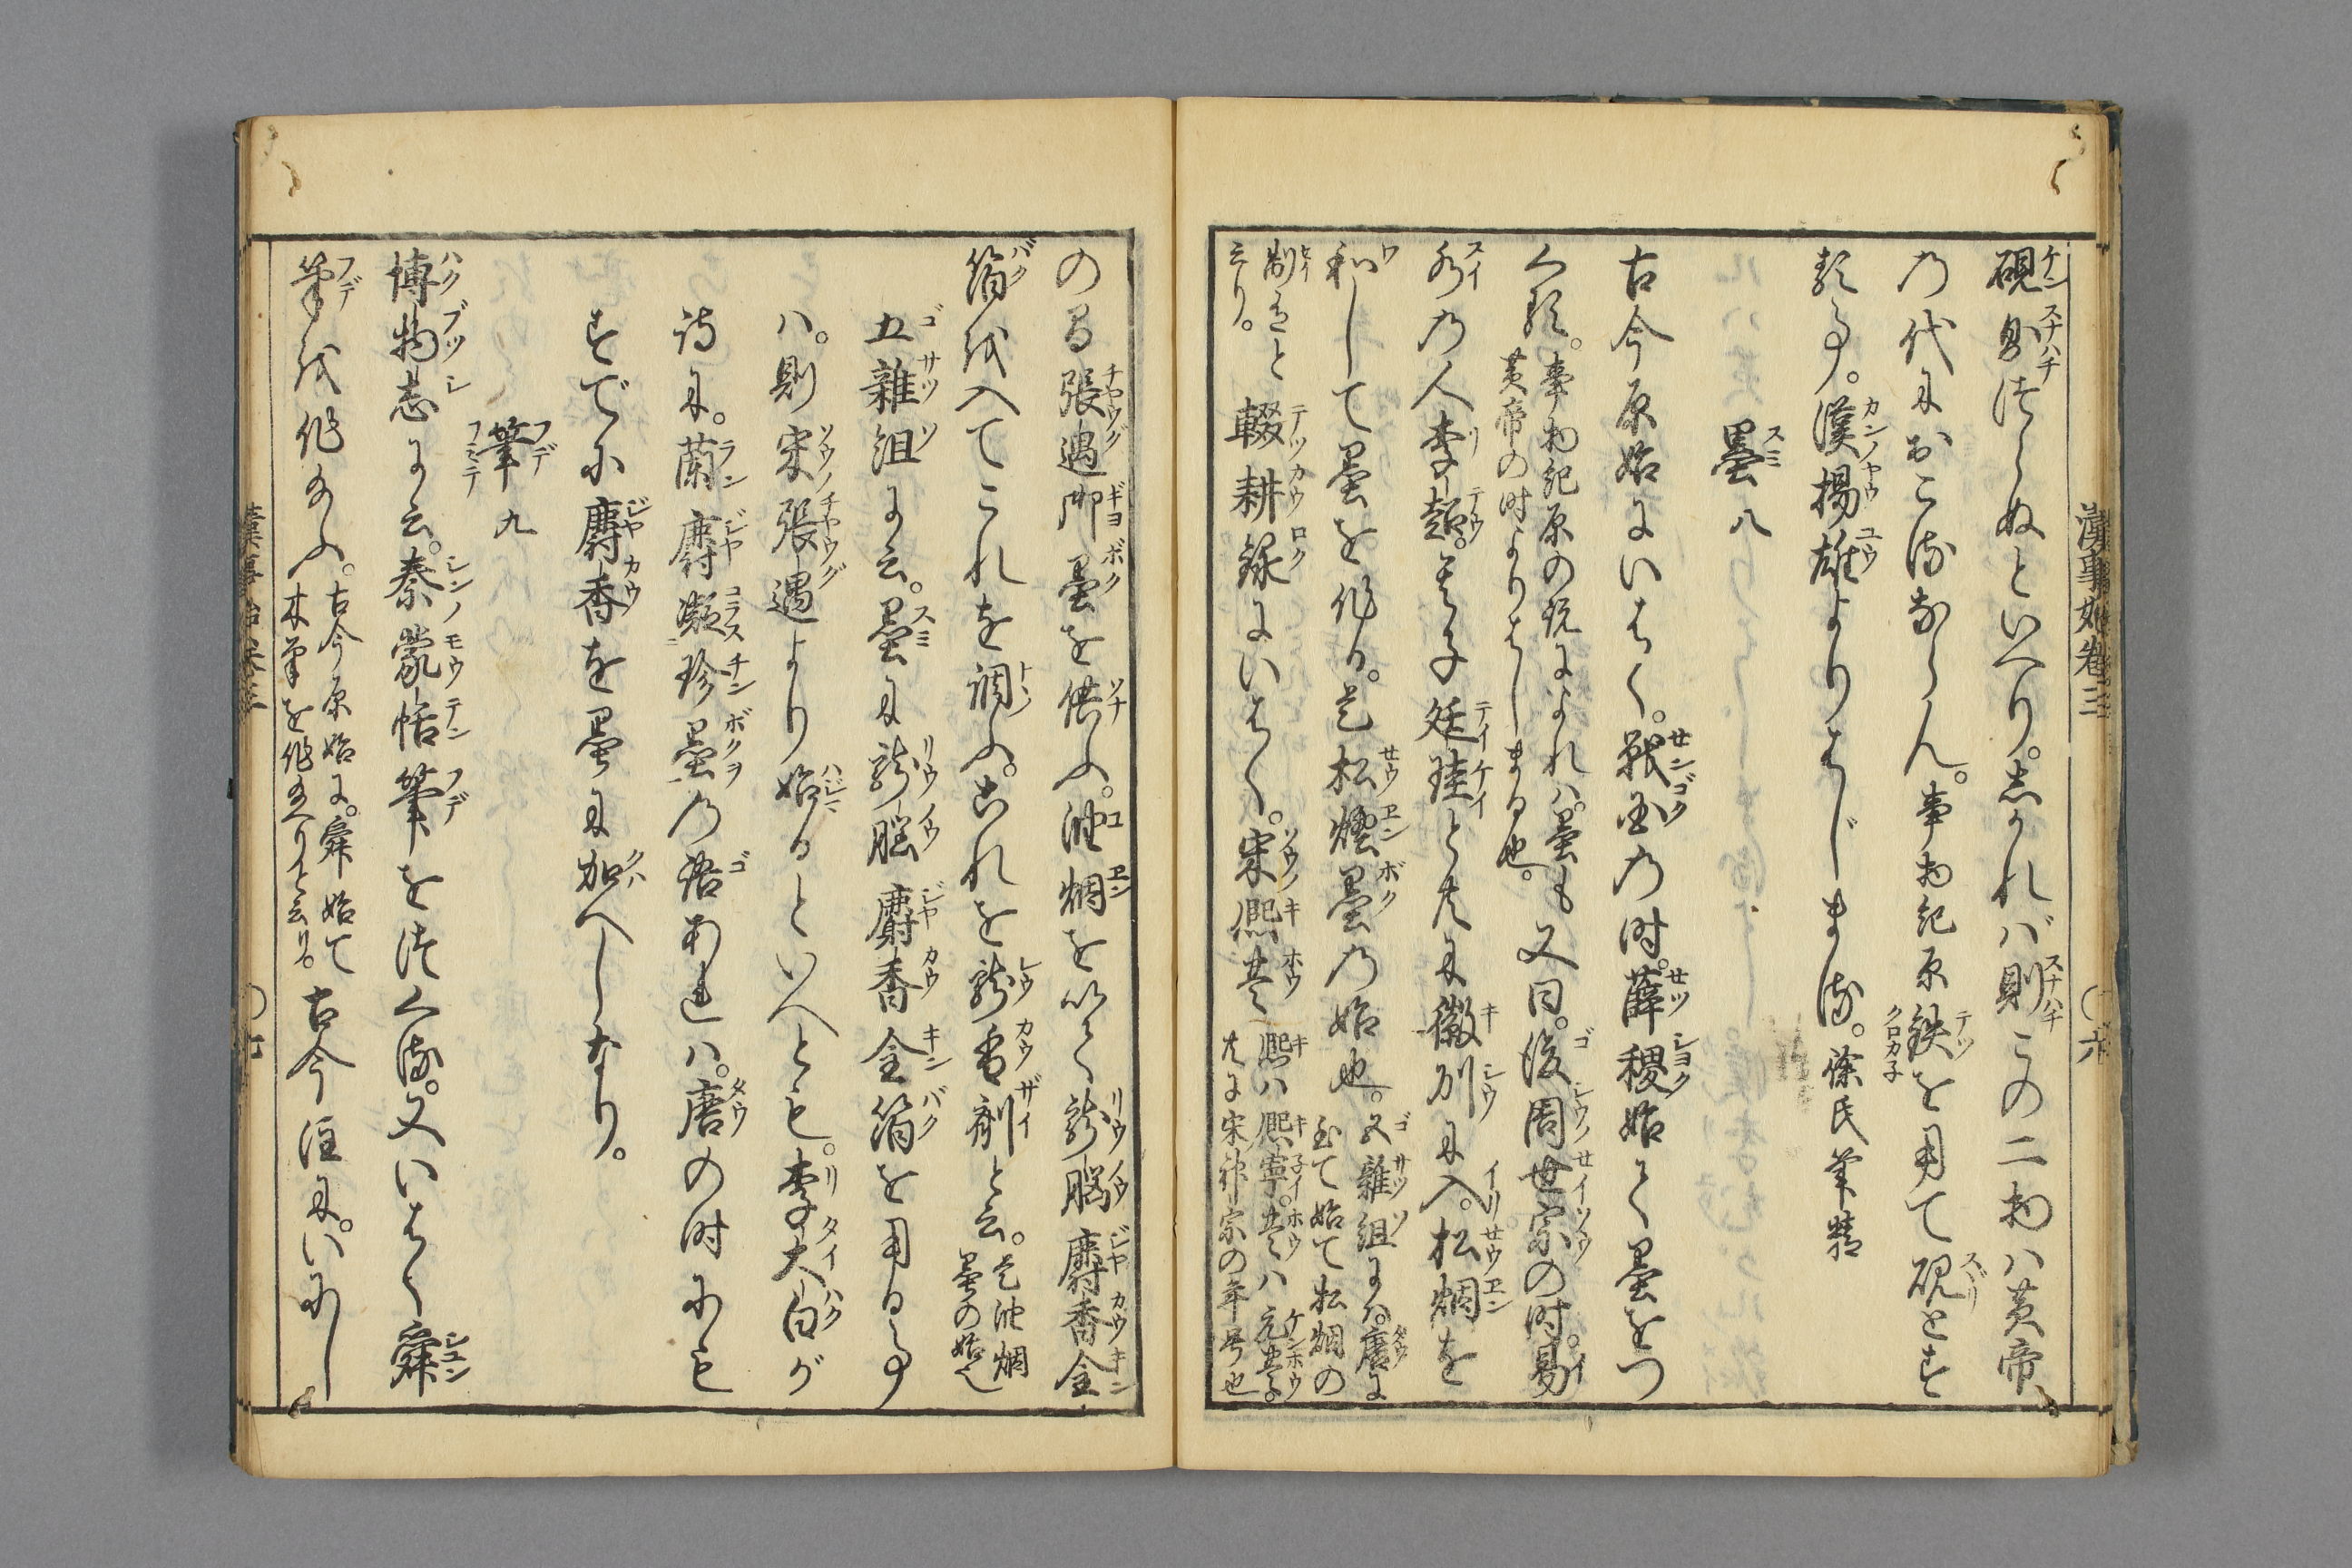 漢事始巻三 〇六
硯則つらぬといへり。志かれバ則この二物ハ黄帝
の代におこるならん。事物紀原鉄を用て硯とする
類事。漢揚雄よりはじまる。徐氏筆精
墨八
古今原始にいはく。戦国の時。薛稷始て墨をつ
くる。事物紀原の説によれハ。墨も黄帝の時よりはしまる也。又曰。後周世宗の時。易
水の人李超。其子廷珪と共に徽州に入。松烟を
和して墨を作る。是松煙墨の始也。又五雑組に云。唐に至て始て松烟の
制有と云り。輟耕録にいはく。宋熙豊熙ハ熙寧。豊ハ元豊。共に宋神宗の年号也
の間張遇御墨を供ふ。油烟を以て龍脳麝香金
箔を入てこれを調ふ。これを龍香剤と云。是油烟墨の始也
五雑組に云。墨に龍脳麝香金箔を用る事
ハ。則宋張遇より始るといへとも。李太白が
詩に。蘭麝凝珍墨の語あれハ。唐の時にも
すでに麝香を墨に加へしなり。
筆九
博物志に云。秦蒙恬筆をつくる。又いはく舜
筆を作給ふ。古今原始に。舜始て木筆を作給へりと云り。古今注に。いにし
漢事始巻三 〇七